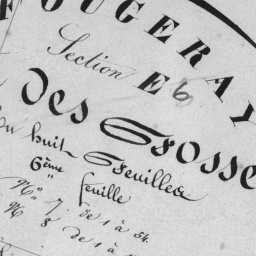 FOUGERAY
Section E 6
des Fosse
en huit Feuilles
6ème feuille
No. 7. de 1 à 54.
No. 8 de 1 à